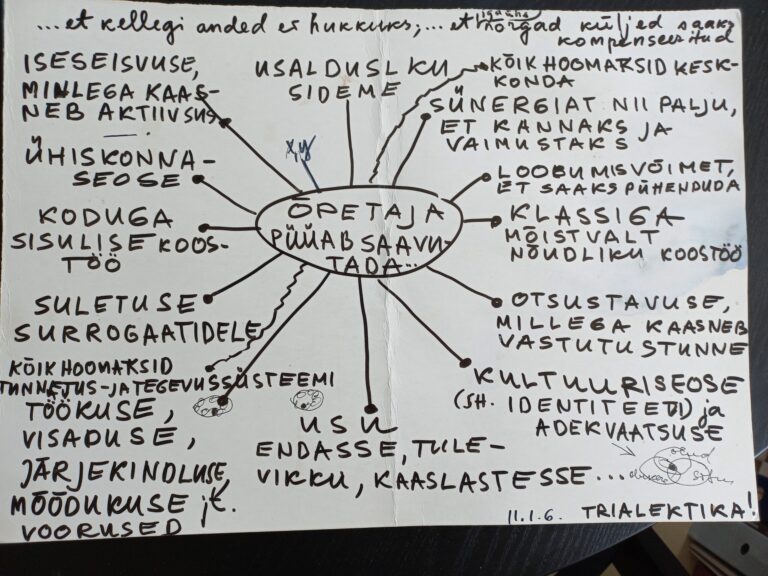 ...et kellegi anded ei hukkuks,... et igaühe nõrgad küljed saaks
kompenseeritud
ISESEISVUSE,
MILLEGA KAAS-
NEB AKTIIVSUS
USALDUSLIKU
SIDEME
KÕIKHÕLMAKSID KESK-
KONDA
SÜNERGIAT NII PALJU,
ET KANNAKS JA
VAIMUSTAKS
ÜHISKONNA-
SEOSE
x,y
LOOBUMISVÕIMET,
ET SAAKS PÜHENDUDA
KODUGA
SISULISE KOOS-
TÖÖ
ÕPETAJA
PÜÜAB SAAVU-
TADA...
KLASSIGA
MÕISTVALT
NÕUDLIKU KOOSTÖÖ
SULETUSE
SURROGAATIDELE
OTSUSTAVUSE,
MILLEGA KAASNEB
VASTUTUSTUNNE
KÕIKHÕLMAKSID
TUNNETUS- JA TEGEVUSSÜSTEEMI
TÖÖKUSE,
VISADUSE,
JÄRJEKINDLUSE,
MÕÕDUKUSE jt.
VOORUSED
USU
ENDASSE, TULE-
VIKKU, KAASLASTESSE...
KULTUURISEOSE
(SH. IDENTITEEDI) ja
ADEKVAATSUSE
11.1.6. TRIALEKTIKA!